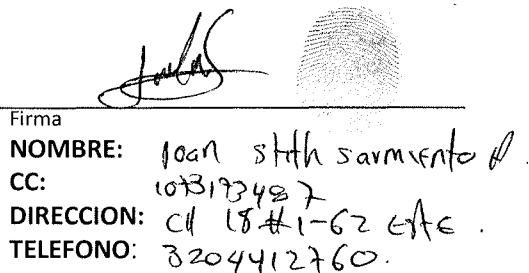 Firma
NOMBRE: Ioan stith sarmiento
CC: 1073173487
DIRECCION: Cll 18 #1-62 EStE.
TELEFONO: 3204412760.